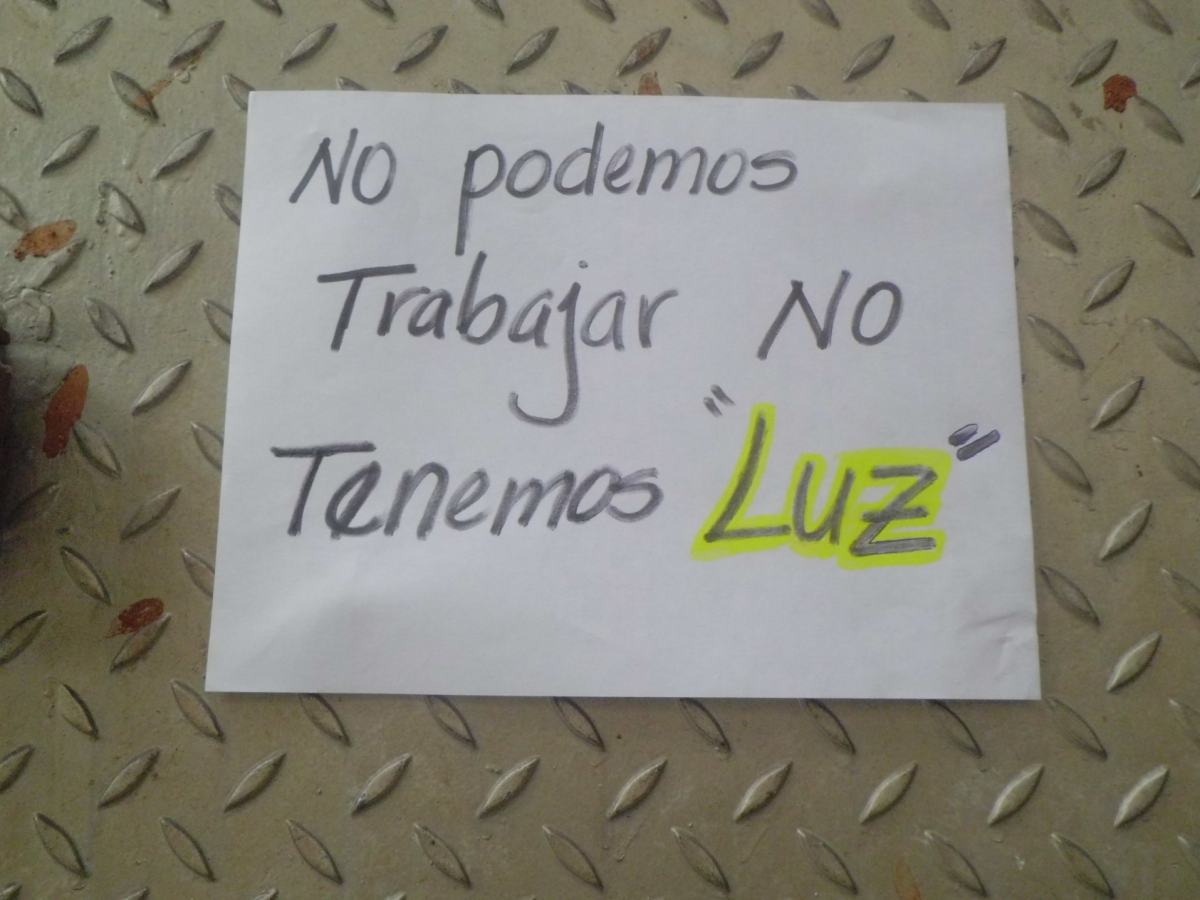 NO podemos
Trabajar NO
Tenemos "Luz"